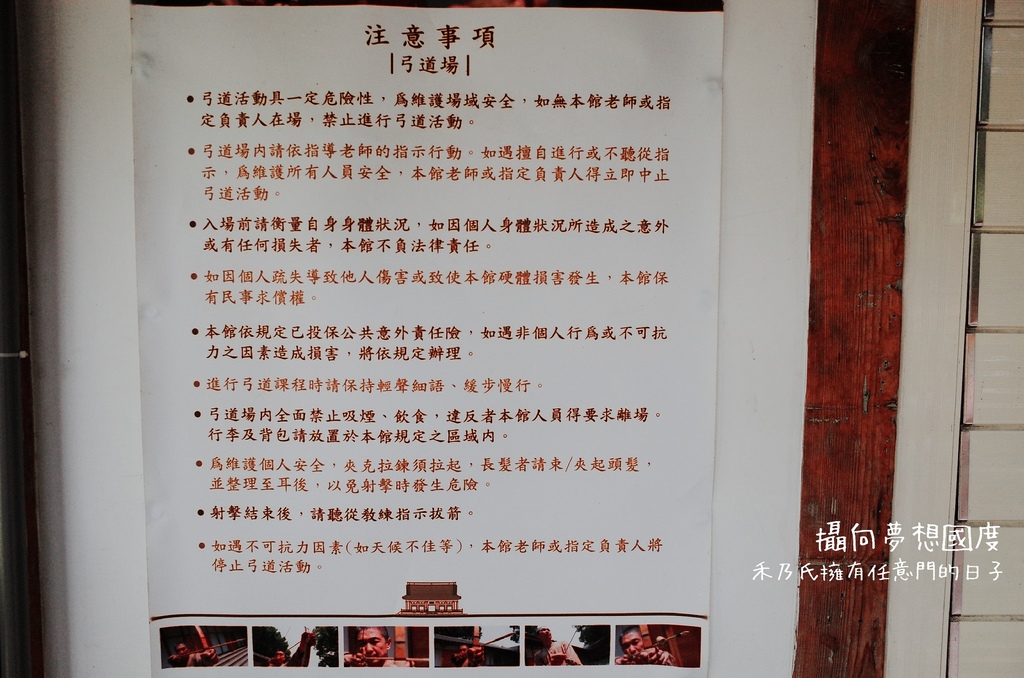 注意事項
|弓道場|
●弓道活動具一定危險性,為維護場域安全,如無本館老師或指
定負責人在場,禁止進行弓道活動。
●弓道場內請依指導老師的指示行動。如遇擅自進行或不聽從指
示,為維護所有人員安全,本館老師或指定負責人得立即中止
弓道活動。
●入場前請衡量自身身體狀況,如因個人身體狀況所造成之意外
或有任何損失者,本館不負法律責任。
●如因個人疏失導致他人傷害或致使本館硬體損害發生,本館保
有民事求償權。
●本館依規定已投保公共意外責任險,如遇非個人行為或不可抗
力之因素造成損害,將依規定辦理。
●進行弓道課程時請保持輕聲細語、緩步慢行。
●弓道場內全面禁止吸煙、飲食,違反者本館人員得要求離場。
行李及背包請放置於本館規定之區域內。
●為維護個人安全,夾克拉鍊須拉起,長髮者請束/夾起頭髮,
並整理至耳後,以免射擊時發生危險。
●射擊結束後,請聽從教練指示拔箭。
●如遇不可抗力因素(如天候不佳等),本館老師或指定負責人將
停止弓道活動。
攝向夢想國度
禾乃氏擁有任意門的日子